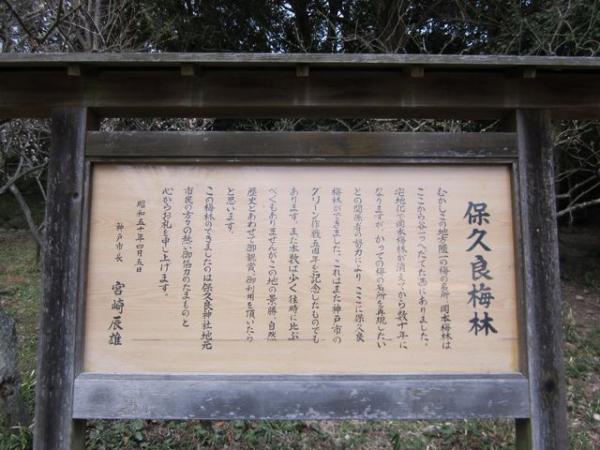 保久良梅林
むかしこの地方随一の梅の名所 岡本梅林は
ここから谷一つへだてた西にありました。
宅地化で岡本梅林が消えてから数十年に
なりますが、かつての梅の名所を再現したい
との関係者の努力により ここに保久良
梅林ができました。これはまた神戸市の
グリーン作戦五周年を記念したものでも
あります。まだ本数は少く往時に比ぶ
べくもありませんがこの地の景勝、自然
歴史とあわせて御観賞、御利用を頂いたら
と思います。
この梅林のできましたのは保久良神社、地元
市民の方々の熱い御協力のたまものと
心からお礼を申し上げます。
昭和五十年四月五日
神戸市長 宮崎辰雄